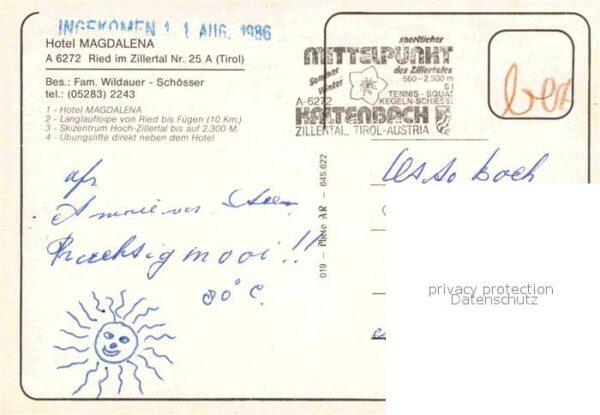 INGEKOMEN 1 1 AUG. 1986
Hotel MAGDALENA
A 6272 Ried im Zillertal Nr. 25 A (Tirol)
Bes.: Fam. Wildauer - Schösser
tel.: (05283) 2243
1 - Hotel MAGDALENA
2 - Langlaufloipe von Ried bis Fügen (10 Km.)
3 - Skizentrum Hoch-Zillertal bis auf 2.300 M.
4 - Übungslifte direkt neben dem Hotel
sportlicher
MITTELPUNKT
des Zillertales
Sommer
Winter
560-2300 m
TENNIS-SQUA
KEGELN-SCHIESS
A-6272
KALTENBACH
ZILLERTAL, TIROL-AUSTRIA
Prachtig mooi!!
30°C.
019 - Photo AR - 645.622
privacy protection
Datenschutz